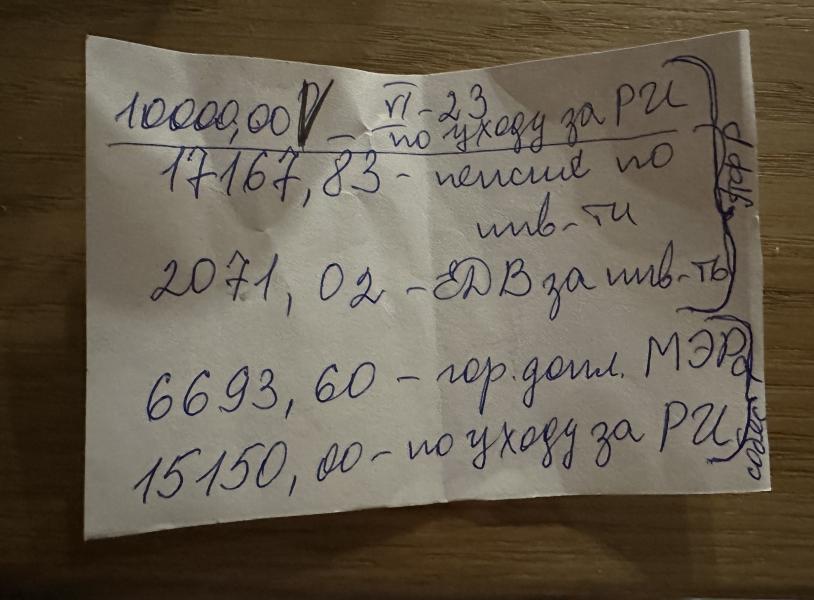 VI-23
10000,00 V – по уходу за РИ
17167,83 - пенсия по
инв-ти
2071,02 - ЕДВ за инв-ть
6693,60 - гор.допл. МЭРа
15150,00 - по уходу за РИ
ПФР